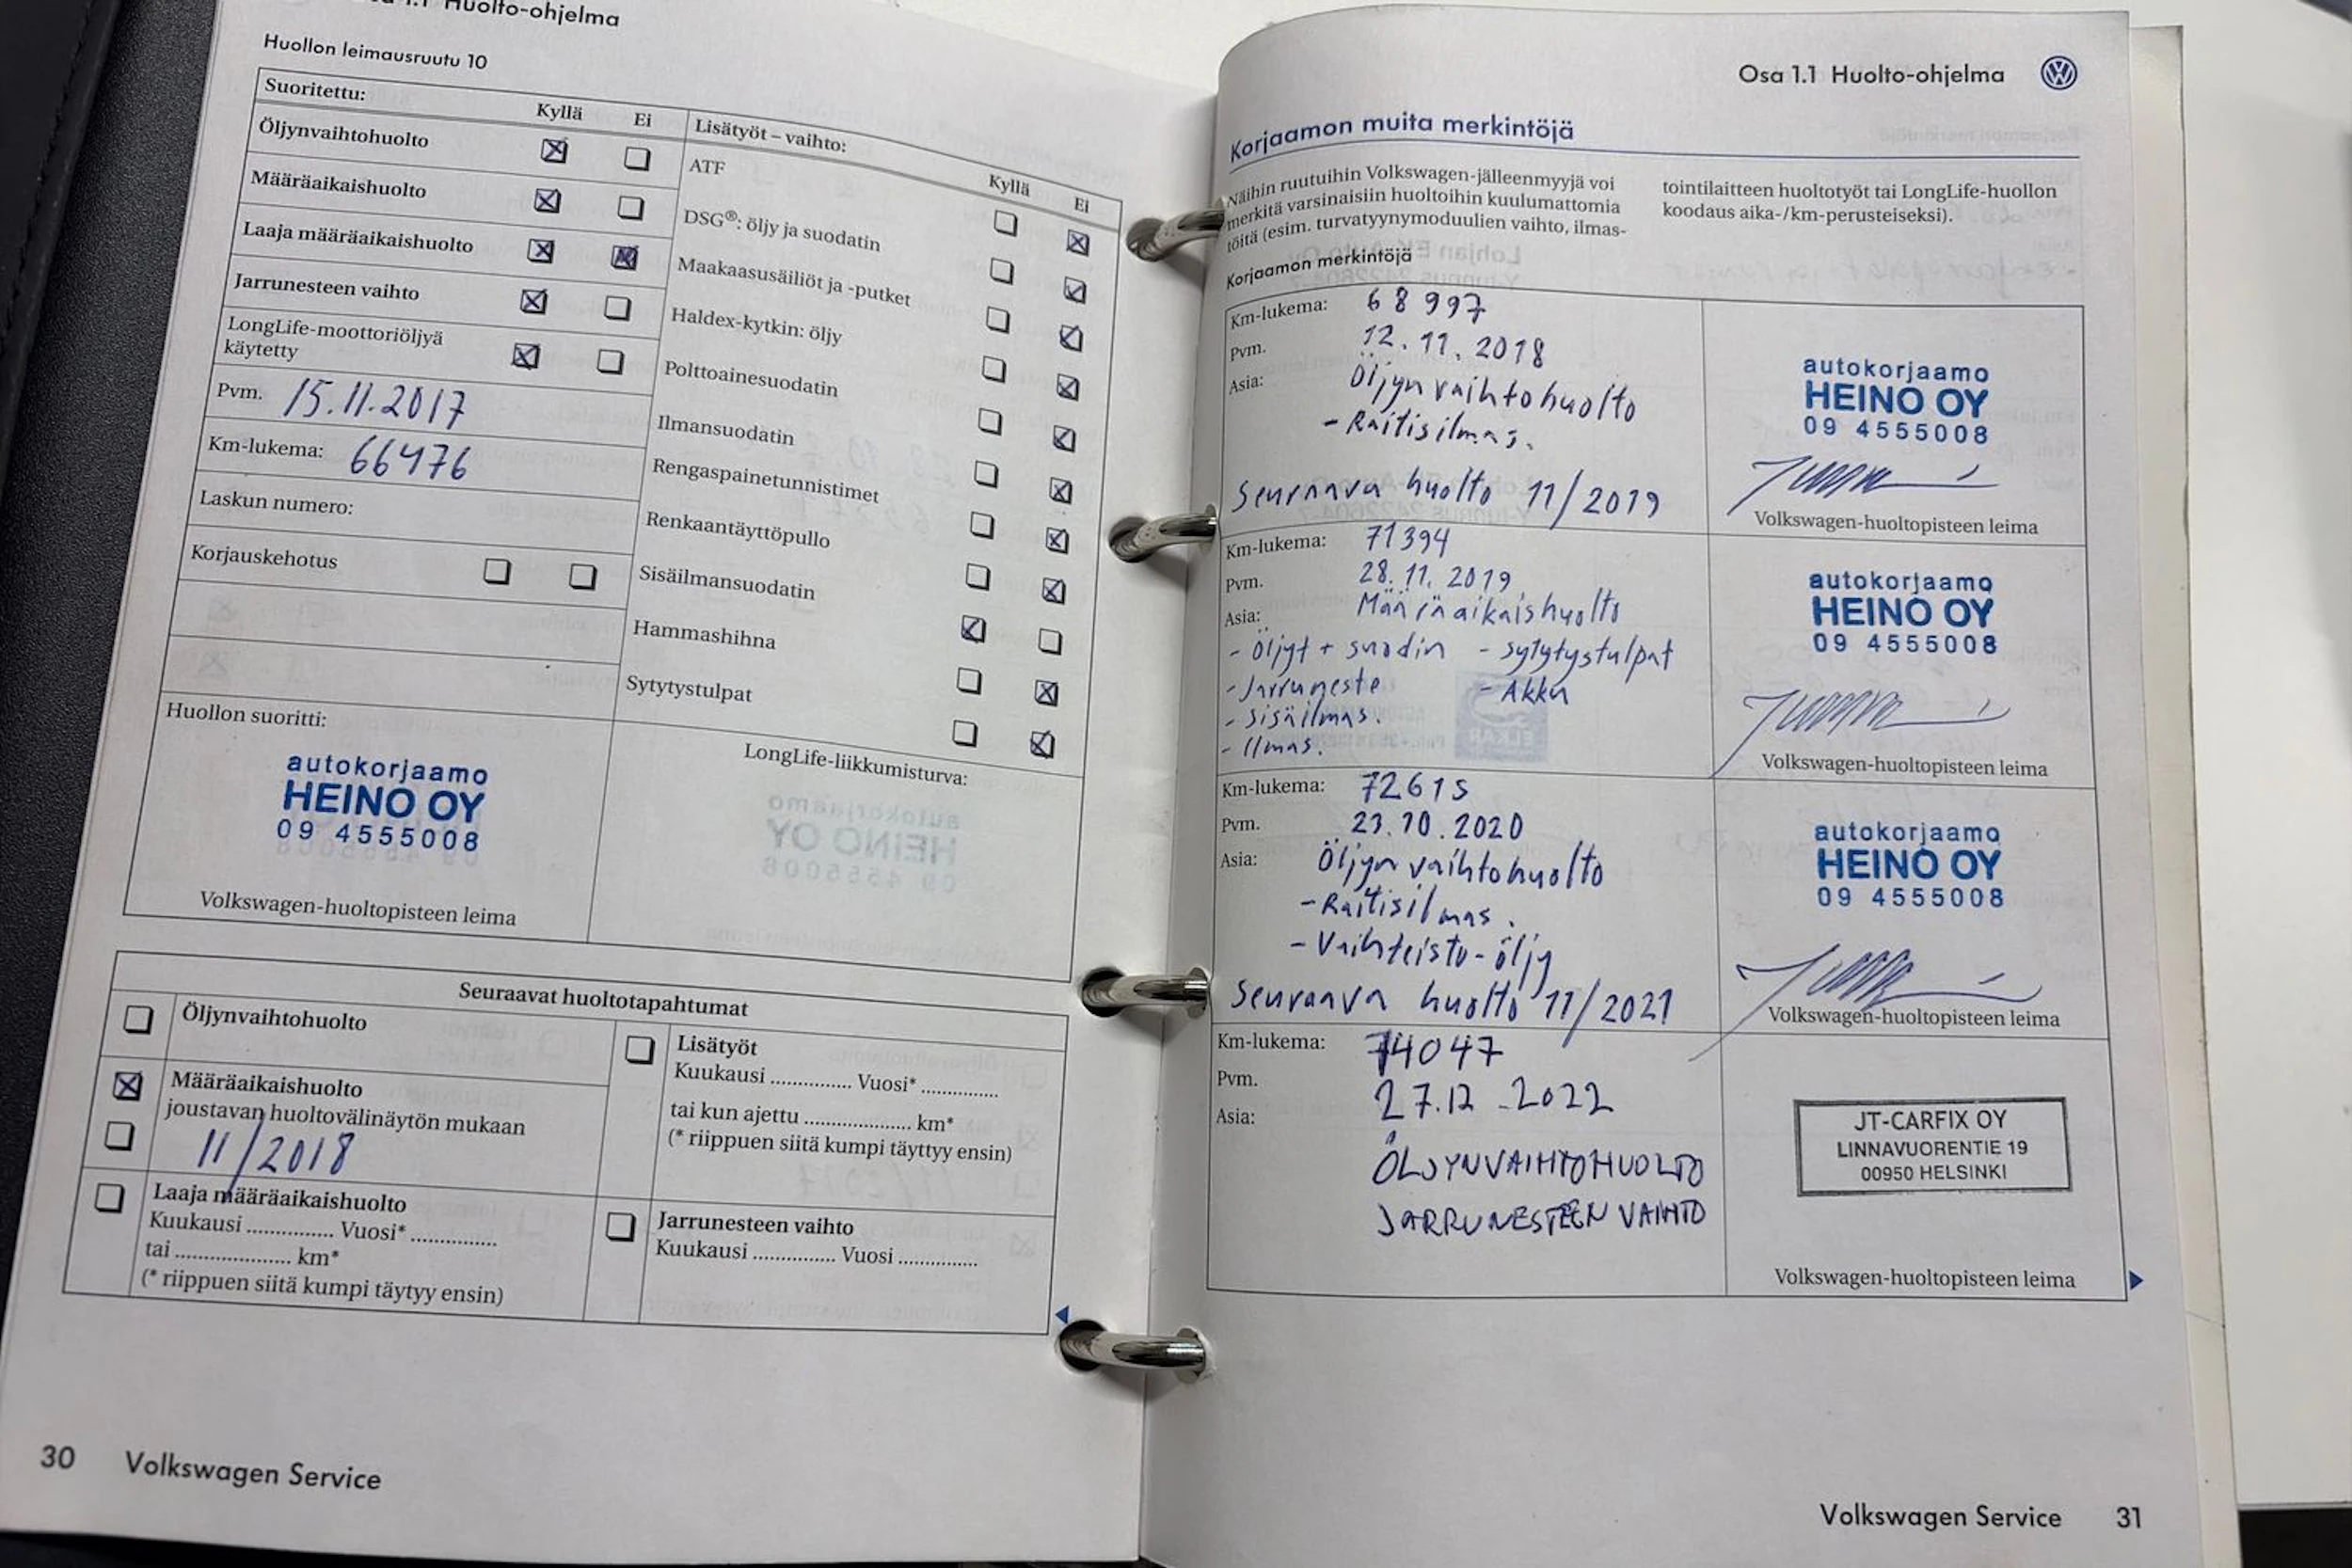 Osa 1.1 Huolto-ohjelma
Huollon leimausruutu 10
Suoritettu:
Kyllä Ei
Öljynvaihtohuolto
Määräaikaishuolto
Laaja määräaikaishuolto
Jarrunesteen vaihto
LongLife-moottoriöljyä
käytetty
Pvm. 15.11.2017
Km-lukema: 66476
Laskun numero:
Korjauskehotus
Lisätyöt – vaihto:
Kyllä Ei
ATF
DSG®: öljy ja suodatin
Maakaasusäiliöt ja -putket
Haldex-kytkin: öljy
Polttoainesuodatin
Ilmansuodatin
Rengaspainetunnistimet
Renkaantäyttöpullo
Sisäilmansuodatin
Hammashihna
Sytytystulpat
Huollon suoritti:
autokorjaamo
HEINO OY
09 4555008
Volkswagen-huoltopisteen leima
LongLife-liikkumisturva:
Seuraavat huoltotapahtumat
Öljynvaihtohuolto
Määräaikaishuolto
joustavan huoltovälinäytön mukaan
11/2018
Laaja määräaikaishuolto
Kuukasi ............... Vuosi* ...............
tai .................... km*
(* riippuen siitä kumpi täytyy ensin)
Lisätyöt
Kuukausi ............... Vuosi* ...............
tai kun ajettu .................... km*
(* riippuen siitä kumpi täyttyy ensin)
Jarrunesteen vaihto
Kuukausi ............... Vuosi ...............
30 Volkswagen Service
Osa 1.1 Huolto-ohjelma
Korjaamon muita merkintöjä
Näihin ruutuihin Volkswagen-jälleenmyyjä voi
merkitä varsinaisiin huoltoihin kuulumattomia
töitä (esim. turvatyynymoduulien vaihto, ilmas-
tointilaitteen huoltotyöt tai LongLife-huollon
koodaus aika-/km-perusteiseksi).
Korjaamon merkintöjä
Km-lukema: 68997
Pvm. 12.11.2018
Asia: Öljynvaihtohuolto
- Raitisilmas.
Seuraava huolto 11/2019
autokorjaamo
HEINO OY
09 4555008
Volkswagen-huoltopisteen leima
Km-lukema: 71394
Pvm. 28.11.2019
Asia: Määräaikaishuolto
- Öljyt + suodin - sytytystulpat
- Jarruneste - Akku
- sisäilmas.
- Ilmas.
autokorjaamo
HEINO OY
09 4555008
Volkswagen-huoltopisteen leima
Km-lukema: 72615
Pvm. 23.10.2020
Asia: Öljynvaihtohuolto
- Raitisilmas.
- Vaihteisto-öljy
Seuraava huolto 11/2021
autokorjaamo
HEINO OY
09 4555008
Volkswagen-huoltopisteen leima
Km-lukema: 74047
Pvm. 27.12.2022
Asia:
ÖLJYNVAIHTOHUOLTO
JARRUNESTEEN VAIHTO
JT-CARFIX OY
LINNAVUORENTIE 19
00950 HELSINKI
Volkswagen-huoltopisteen leima
Volkswagen Service 31